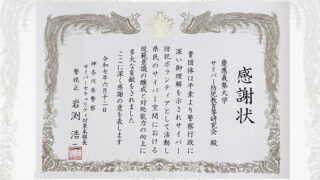 感謝状
慶應義塾大学
サイバー防犯教育等研究会 殿
貴団体は平素より警察行政に
深い御理解を示されサイバー
防犯ボランティアとして活動し
県民のサイバー空間における
規範意識の醸成と対処能力の向上に
多大な貢献をされました
ここに深く感謝の意を表します
令和七年六月十二日
神奈川県警察
サイバーセキュリティ対策本部長
警視正 岩渕 浩